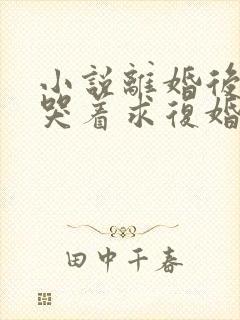 小說離婚後
哭着求復婚
田中千春